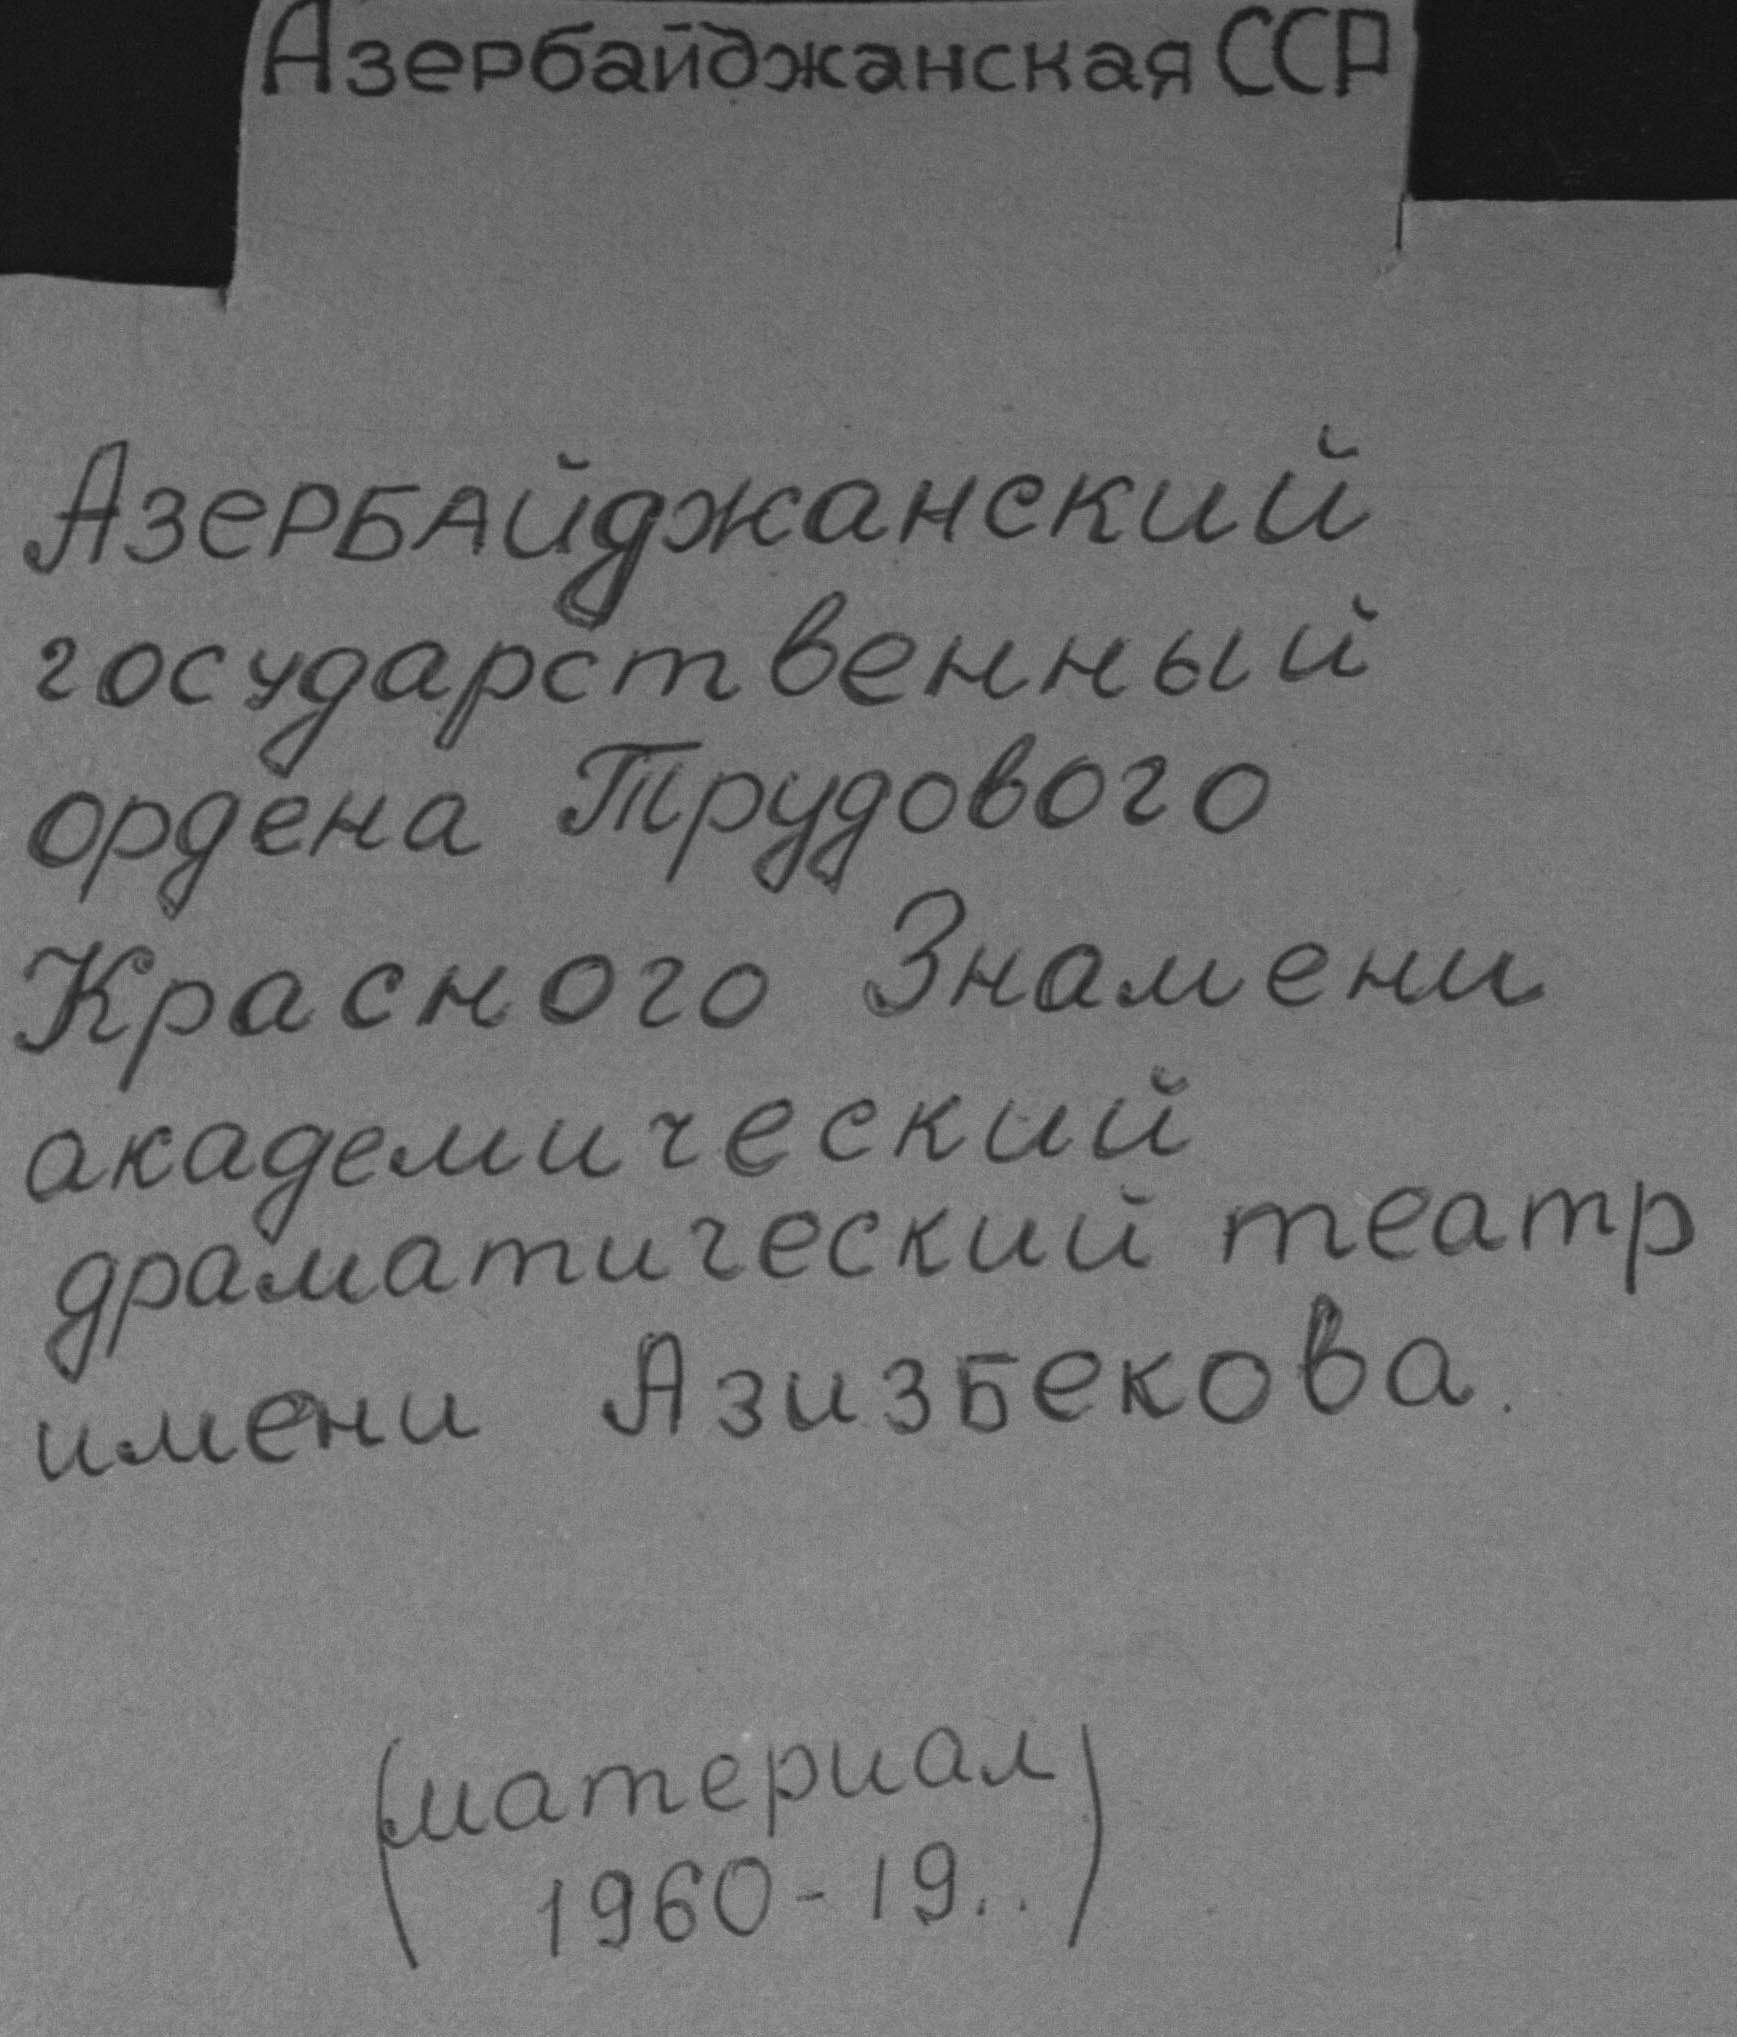 Азербайджанская ССР
Азербайджанский
государственный
ордена Трудового
Красного Знамени
академический
драматический театр
имени Азизбекова.
(материал
1960-19..)